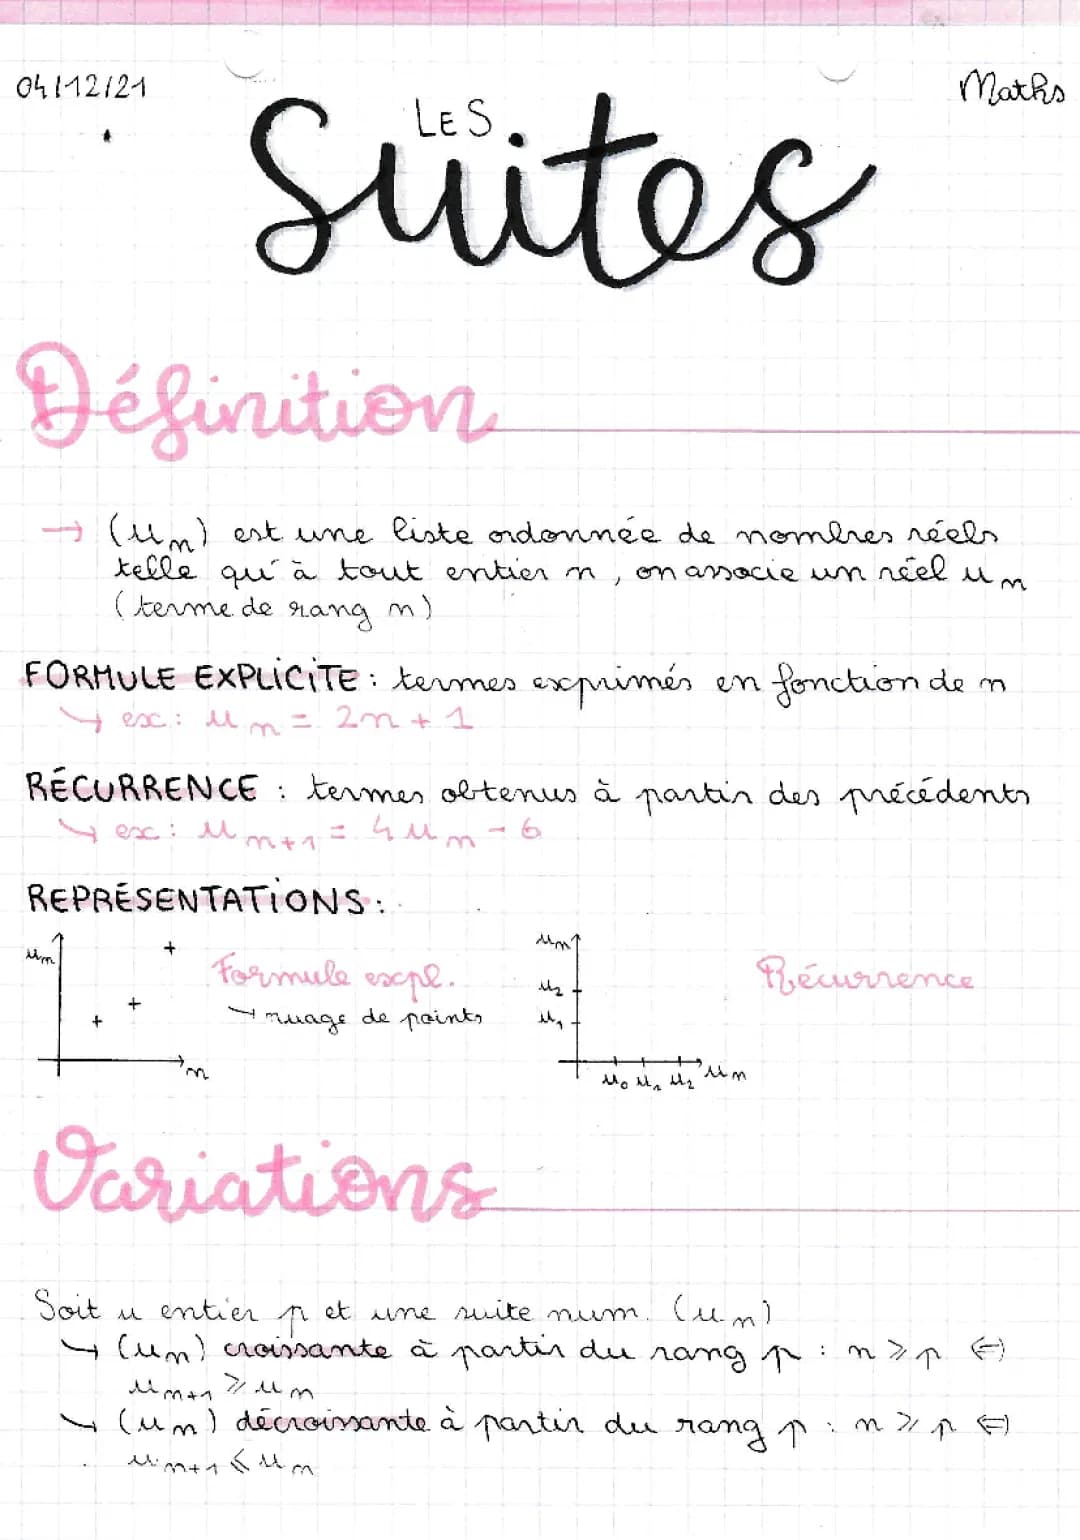 04/12/21
Maths
LES
Suites
Définition
→ (un) est une liste ordonnée de nombres réels
telle qu'à tout entier n, on associe un réel un
(terme de rang n)
FORMULE EXPLICITE : termes exprimés en fonction de n
↳ ex : un = 2n + 1
RÉCURRENCE : termes obtenus à partir des précédents
↳ ex : un+1 = 4un - 6
REPRÉSENTATIONS :
un
n
Formule expl.
→ nuage de points
un
u2
u1
u0 u1 u2 un
Récurrence
Variations
Soit u entier p et une suite num. (un)
↳ (un) croissante à partir du rang p : n ⩾ p ⇔
un+1 ⩾ un
↳ (un) décroissante à partir du rang p : n ⩾ p ⇔
un+1 ⩽ un